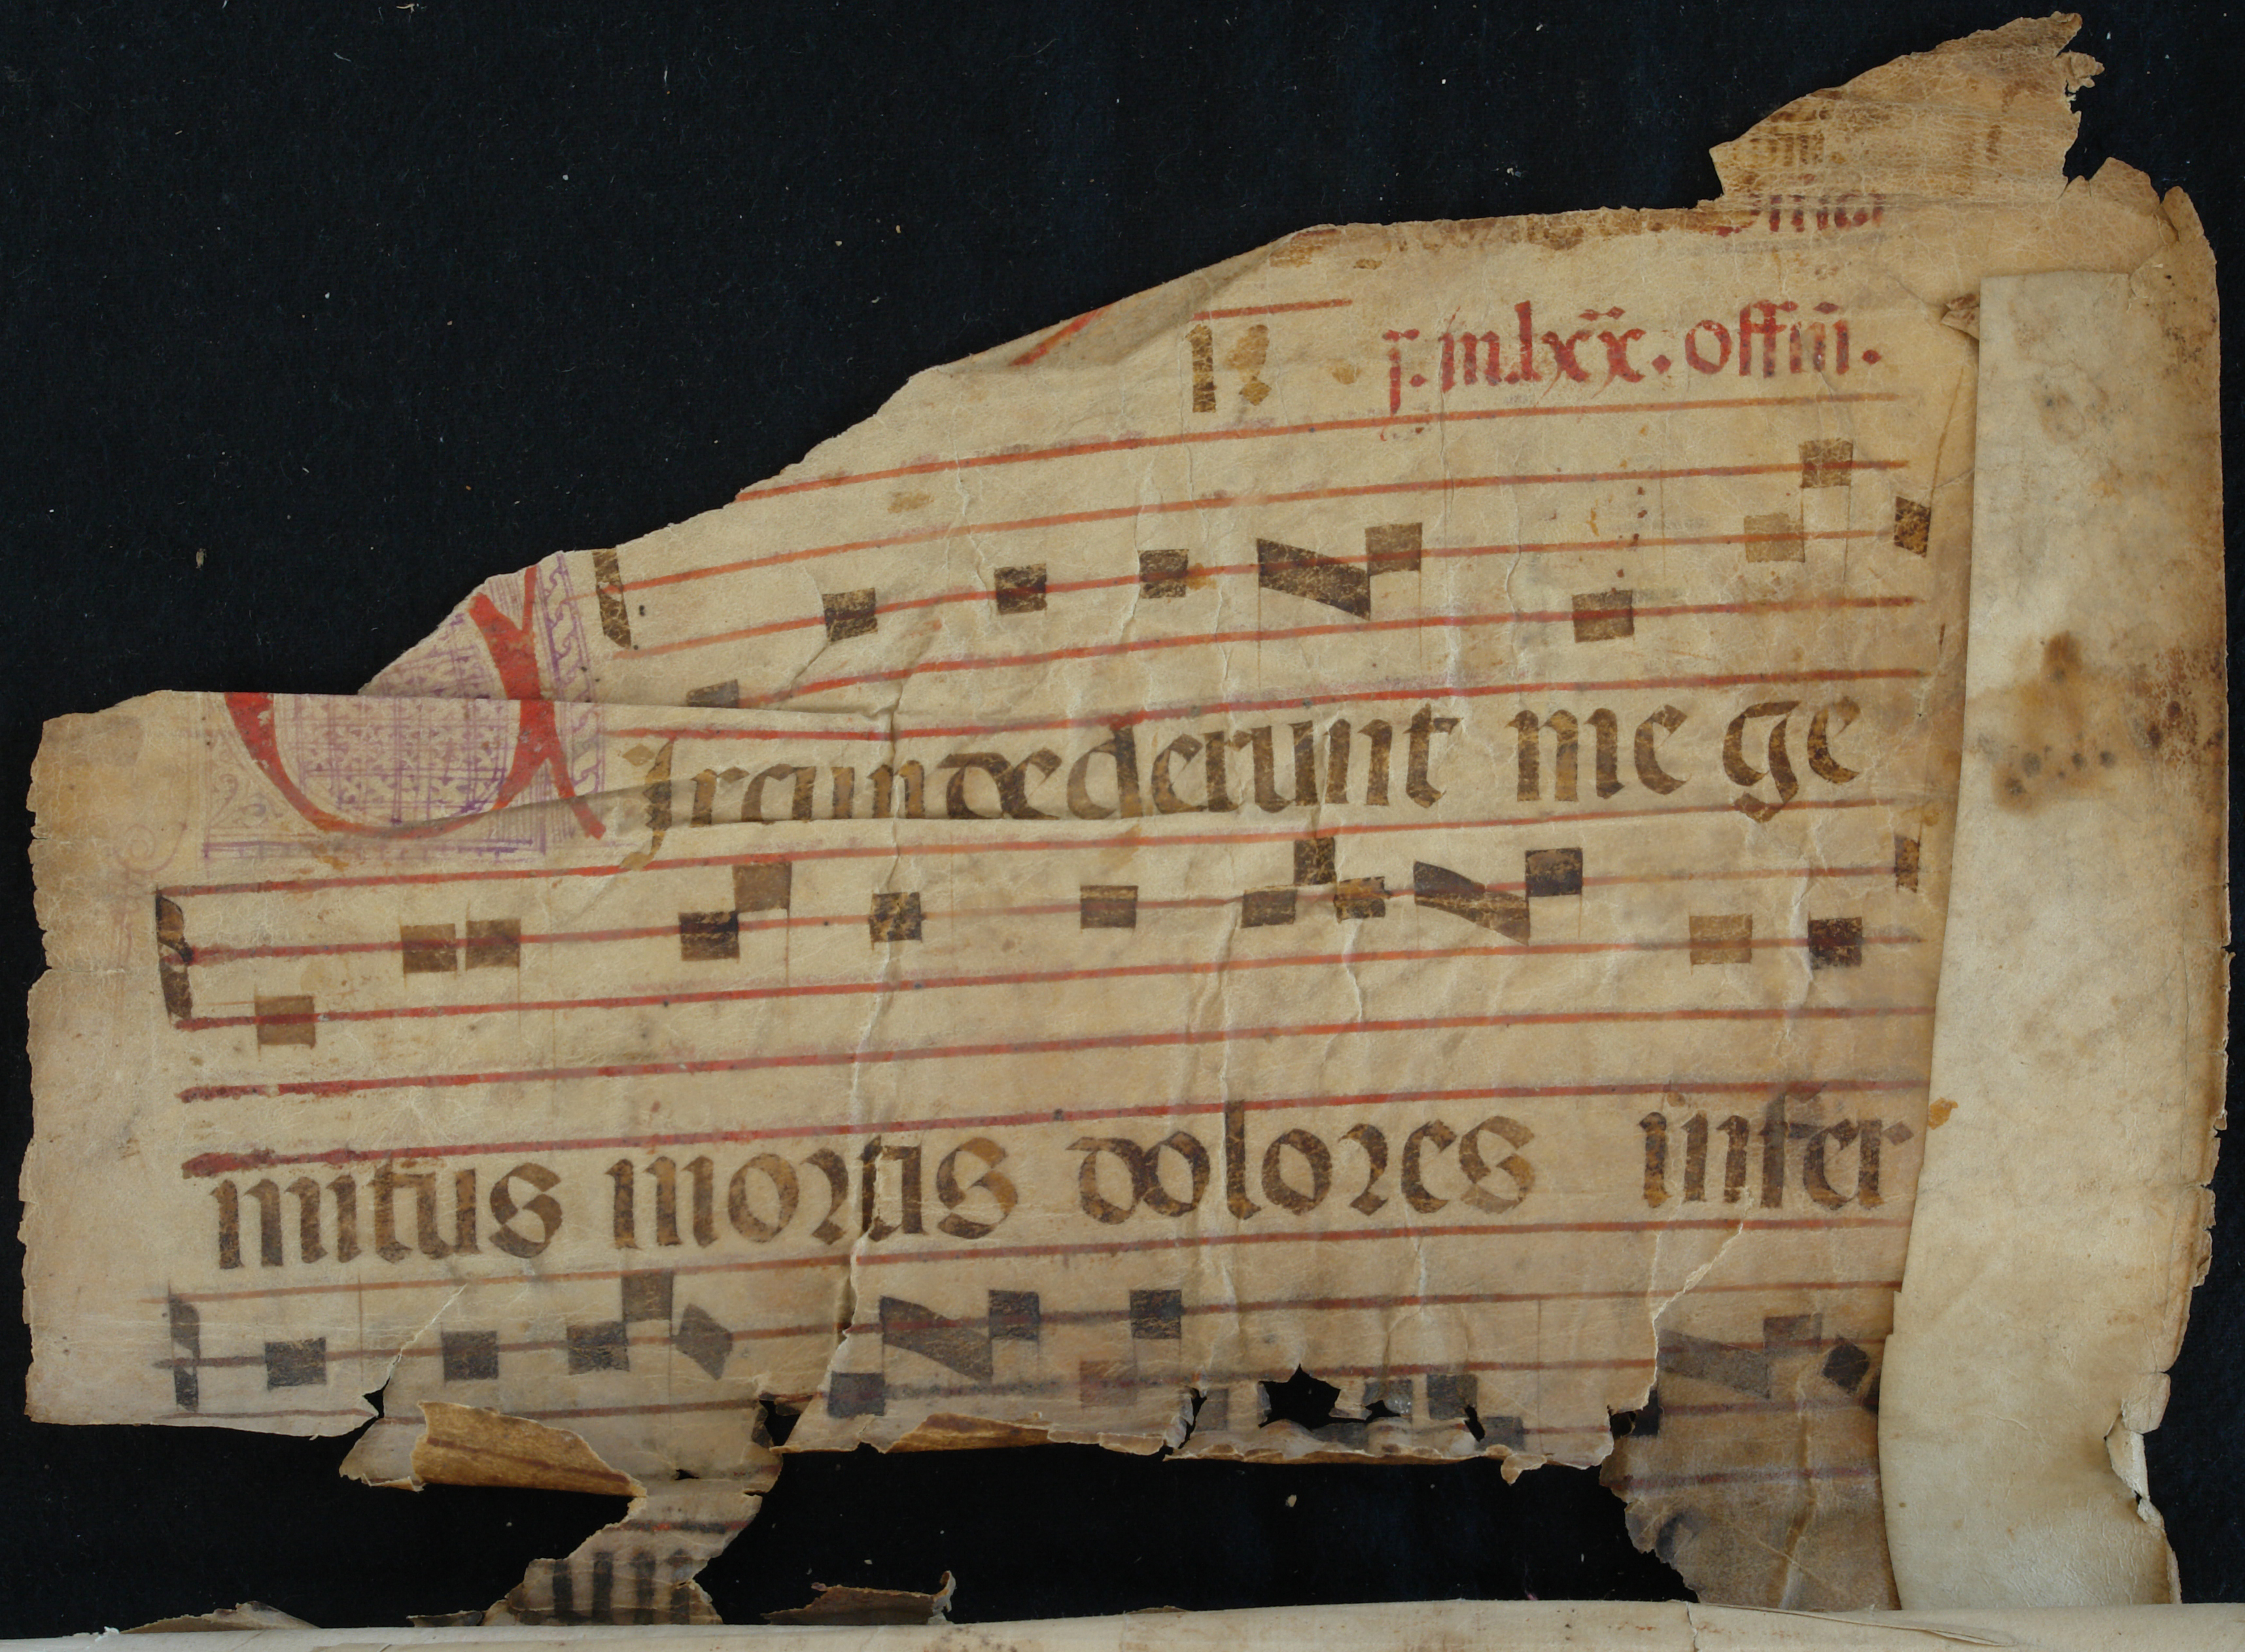 j. in.lxx. offm̄.
Circundederunt me ge
mitus mortis dolores infer